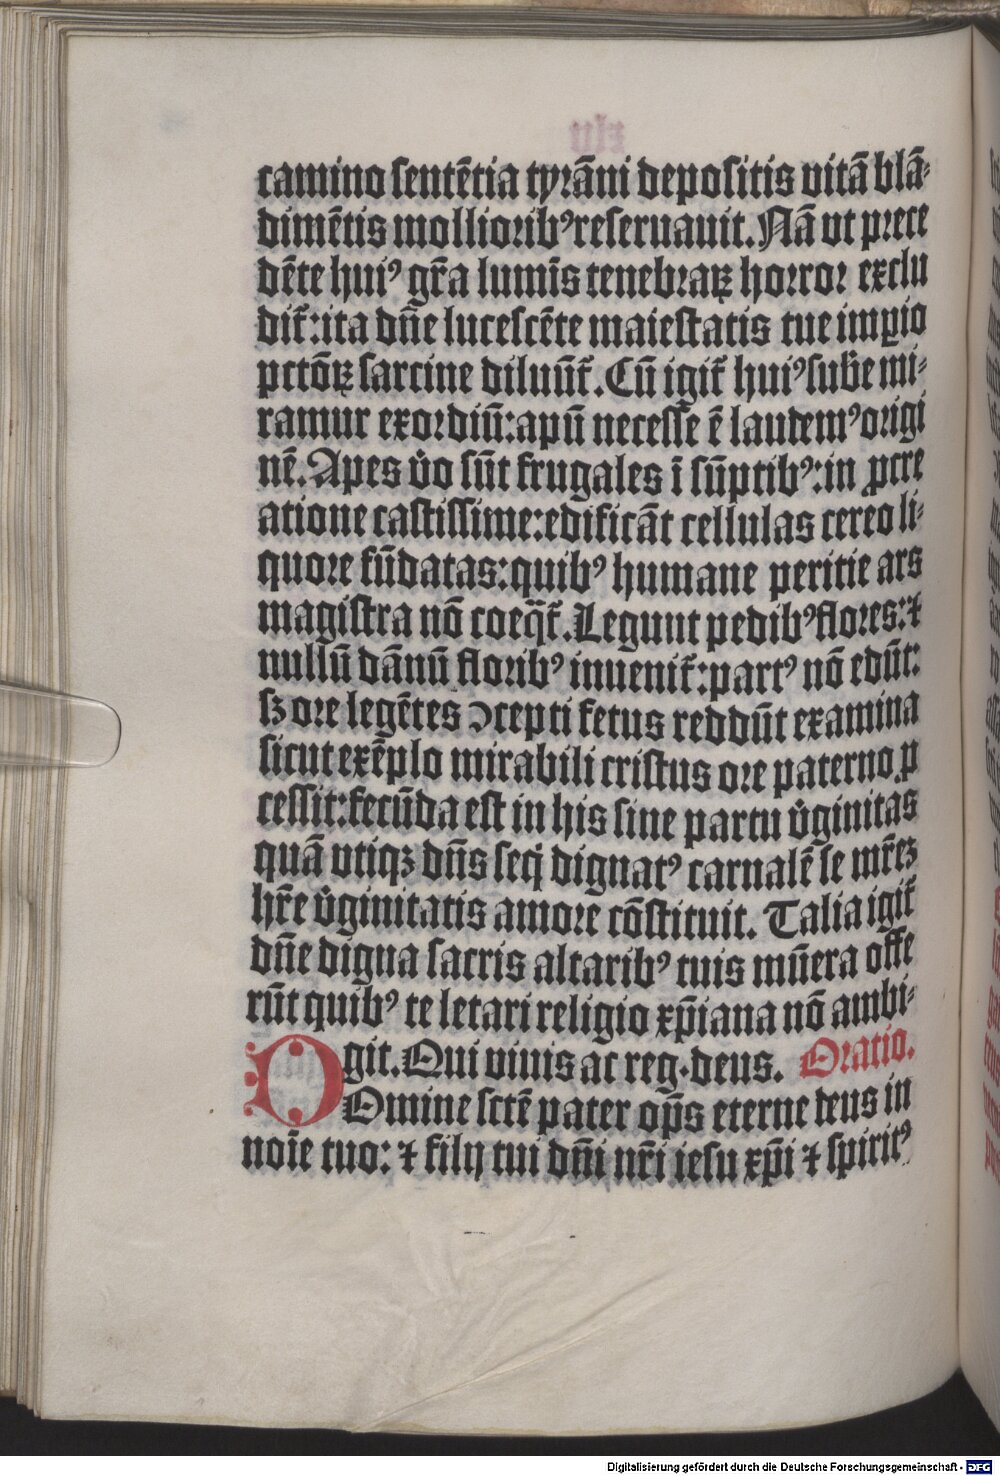 camino sentētia tyrāni depositis vitā blā⸗
dimētis mollioribꝰ reseruauit. Nā vt prece
dēte huiꝰ gr̄a lumīs tenebraꝝ horror exclu
dit̄: ita dn̄e lucescēte maiestatis tue imꝑio
pctōꝝ sarcine diluūt̄. Cū igit̄ huiꝰ sub̄e mi⸗
ramur exordiū: apū necesse ē laudemꝰ origi
nē. Apes v̊o sūt frugales ī sūptibꝰ: in ꝓcre
atione castissime: edificāt cellulas cereo li⸗
quore fūdatas: quibꝰ humane peritie ars
magistra nō coeq̄t̄. Legunt pedibꝰ flores: ⁊
nullū dānū floribꝰ inuenit̄: partꝰ nō edūt:
sꝫ ore legētes ↄcepti fetus reddūt examina
sicut exēplo mirabili cristus ore paterno ꝓ
cessit: fecūda est in his sine partu v̊ginitas
quā vtiqꝫ dn̄s seq̇ dignatꝰ carnalē se mr̄eꝫ
hr̄e v̊ginitatis amore cōstituit. Talia igit̄
dn̄e digna sacris altaribꝰ tuis mūera offe
rūt quibꝰ te letari religio xp̄iana nō ambi⸗
git. Qui viuis ac reg. deus. Oratio.
DOmine sctē pater op̄s eterne deus in
noīe tuo: ⁊ filij tui dn̄i nr̄i iesu xp̄i ⁊ spiritꝰ
Digitalisierung gefördert durch die Deutsche Forschungsgemeinschaft - DFG